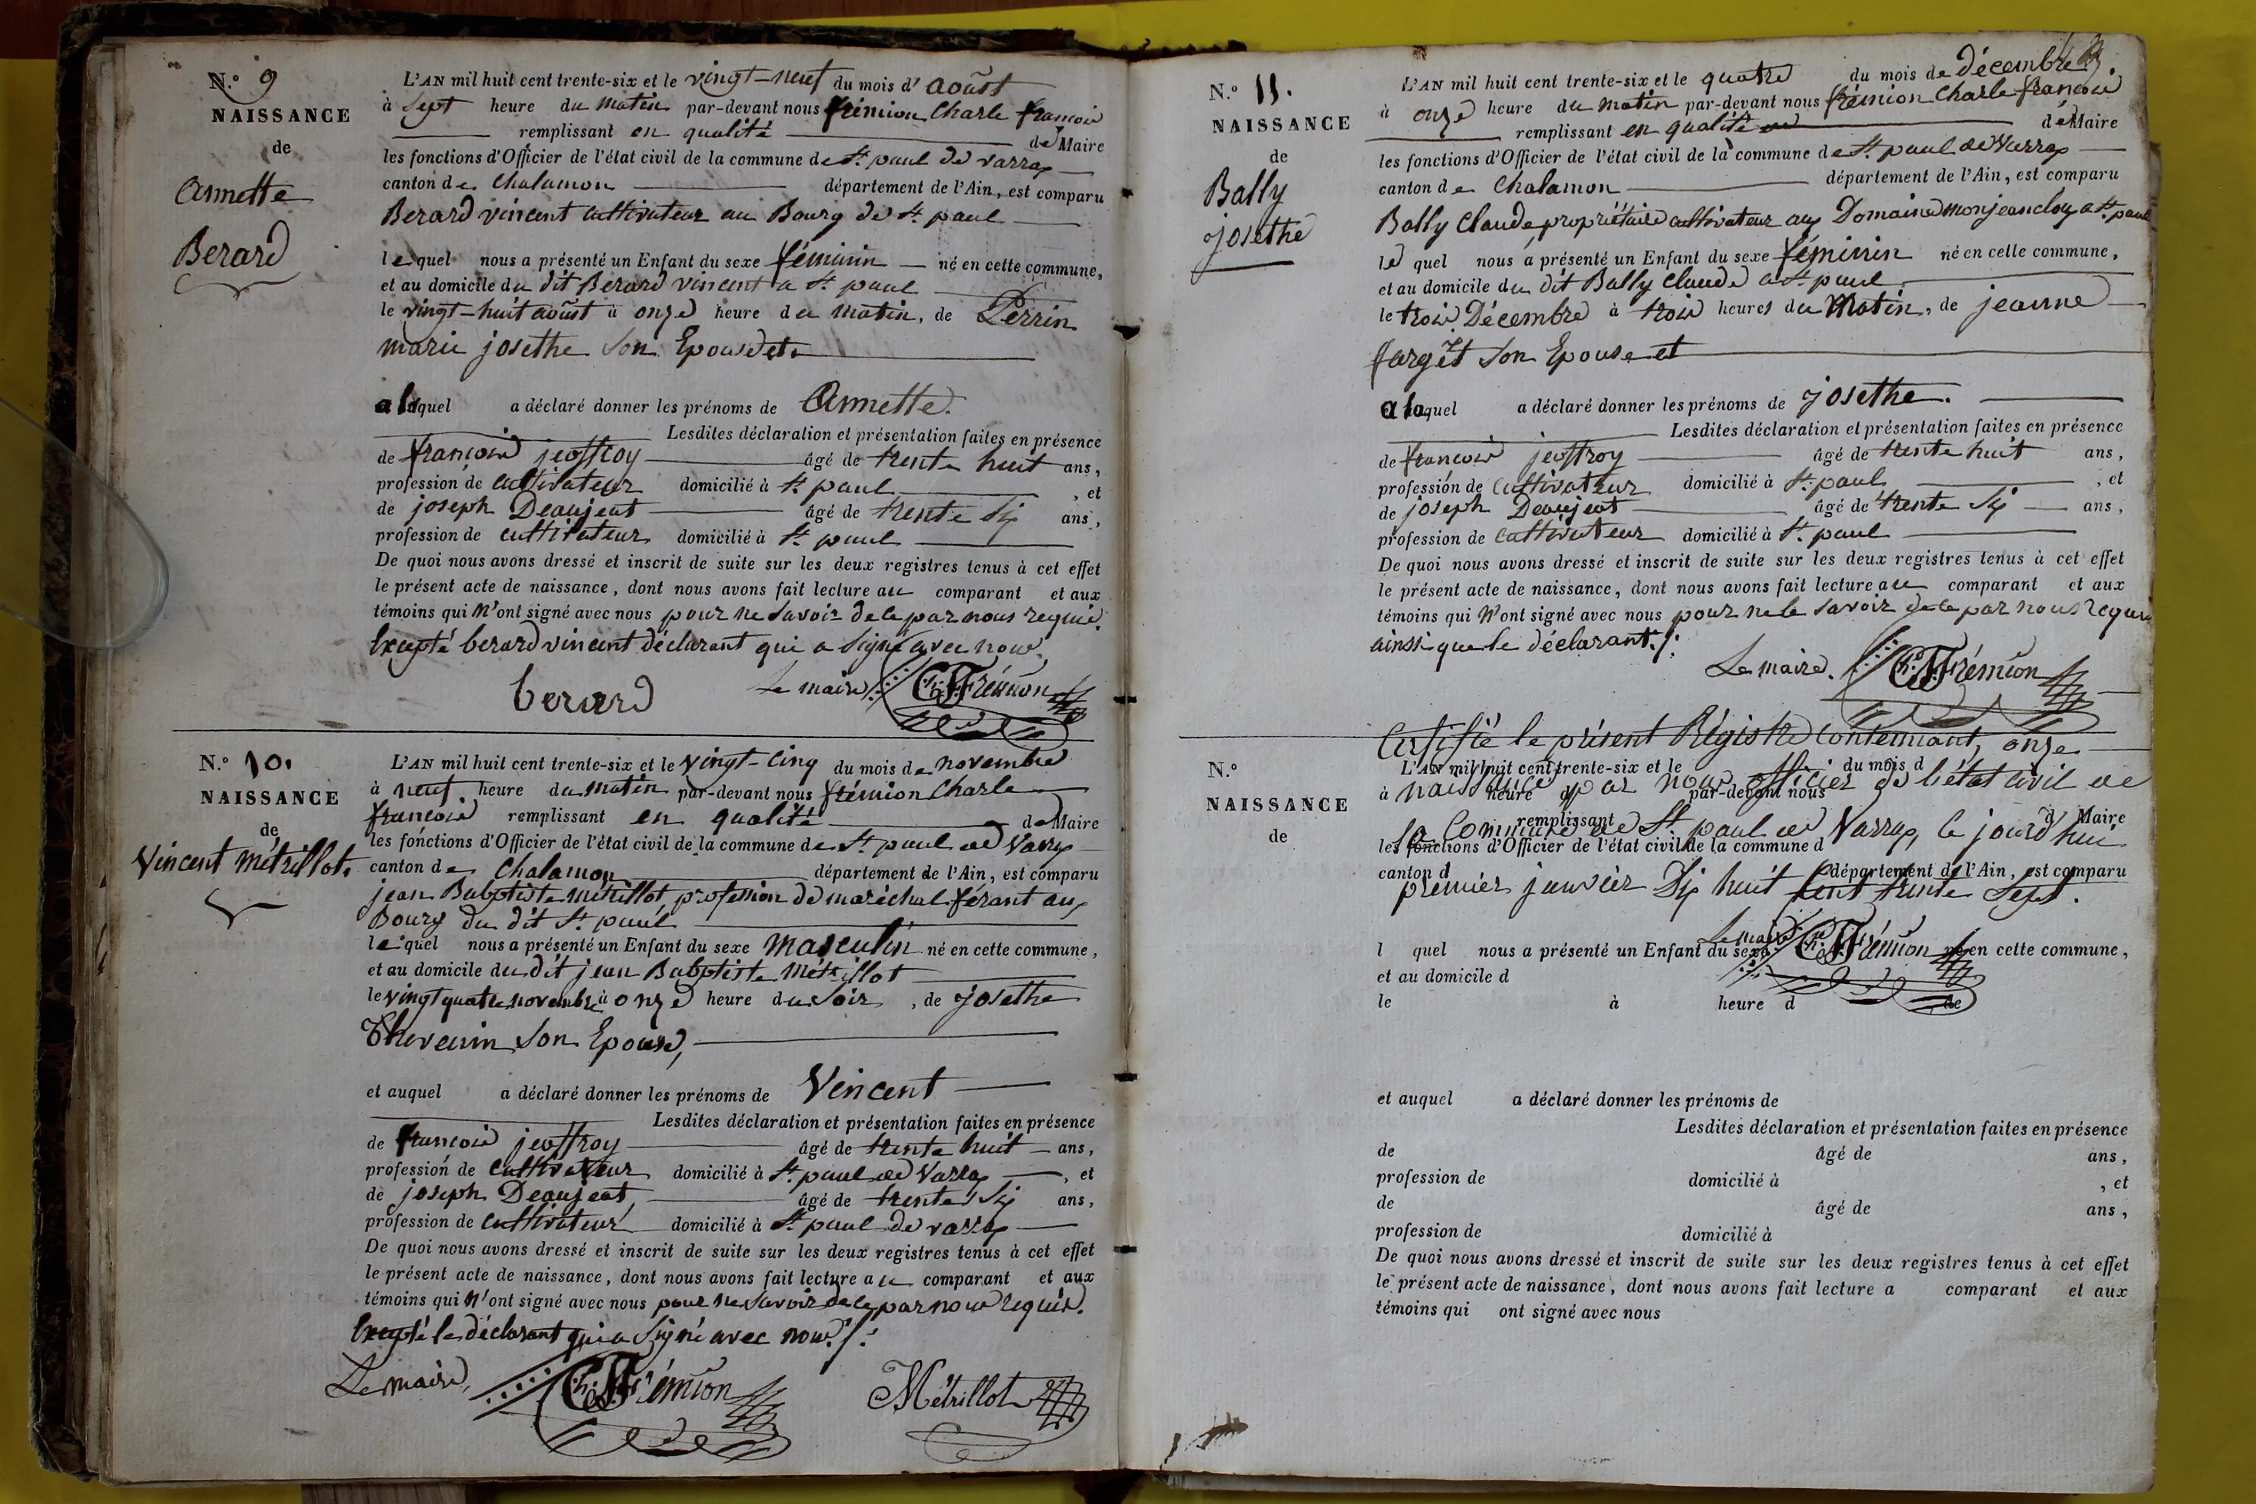 N.° 9
NAISSANCE
de
Annette
Berard
L'AN mil huit cent trente-six et le vingt-neuf du mois d'aoûst
à sept heure du matin par-devant nous frémion Charle françois
remplissant en qualité de Maire
les fonctions d'Officier de l'état civil de la commune de St. paul de varrax
canton de Chalamon département de l'Ain, est comparu
Berard vincent cultivateur au Bourg de St. paul
lequel nous a présenté un Enfant du sexe féminin né en cette commune,
et au domicile du dit Berard vincent a St. paul
le vingt-huit aoûst à onze heure du matin, de Perrin
marie josethe son Epouse et
a laquel a déclaré donner les prénoms de Annette.
Lesdites déclaration et présentation faites en présence
de françois jeoffroy âgé de trente huit ans,
profession de cultivateur domicilié à St. paul , et
de joseph Deaujeat âgé de trente six ans,
profession de cultivateur domicilié à St. paul
De quoi nous avons dressé et inscrit de suite sur les deux registres tenus à cet effet
le présent acte de naissance, dont nous avons fait lecture au comparant et aux
témoins qui n'ont signé avec nous pour ne savoir de ce par nous requis.
Excepté berard vincent déclarant qui a signé avec nous.
berard Le maire Ch. F. Frémion
N.° 10.
NAISSANCE
de
Vincent Métrillot.
L'AN mil huit cent trente-six et le vingt-cinq du mois de novembre
à neuf heure du matin par-devant nous frémion Charle
françois remplissant en qualité de Maire
les fonctions d'Officier de l'état civil de la commune de St. paul de Varax
canton de Chalamon département de l'Ain, est comparu
jean Babptiste Métrillot, profession de maréchal férant au
Bourg du dit St. paul
lequel nous a présenté un Enfant du sexe masculin né en cette commune,
et au domicile du dit jean Babptiste Métrillot
le vingt quatre novembre à onze heure du soir , de josethe
Thevenin son Epouse,
et auquel a déclaré donner les prénoms de Vincent
Lesdites déclaration et présentation faites en présence
de françois jeoffroy âgé de trente huit ans,
profession de cultivateur domicilié à St. paul de Varrax , et
de joseph Deaujeat, âgé de trente six ans,
profession de cultivateur domicilié à St. paul de varrax
De quoi nous avons dressé et inscrit de suite sur les deux registres tenus à cet effet
le présent acte de naissance, dont nous avons fait lecture au comparant et aux
témoins qui n'ont signé avec nous pour ne savoir de ce par nous requis.
Excepté le déclarant qui a signé avec nous
Le maire, Ch. F. Frémion Métrillot
N.° 11.
NAISSANCE
de
Bally
josethe
L'AN mil huit cent trente-six et le quatre du mois de décembre
à onze heure du matin par-devant nous frémion Charle françois
remplissant en qualité de de Maire
les fonctions d'Officier de l'état civil de la commune de St. paul de Varrax
canton de Chalamon département de l'Ain, est comparu
Bally Claude propriétaire cultivateur au Domaine monjeancloy a St. paul
le quel nous a présenté un Enfant du sexe féminin né en cette commune,
et au domicile du dit Bally Claude a St. paul
le trois Décembre à trois heures du Matin, de jeanne
farget son Epouse et
a laquel a déclaré donner les prénoms de josethe.
Lesdites déclaration et présentation faites en présence
de françois jeoffroy âgé de trente huit ans,
profession de cultivateur domicilié à St. paul , et
de joseph Deaujeat âgé de trente six ans,
profession de cultivateur domicilié à St. paul
De quoi nous avons dressé et inscrit de suite sur les deux registres tenus à cet effet
le présent acte de naissance, dont nous avons fait lecture au comparant et aux
témoins qui n'ont signé avec nous pour ne le savoir de ce par nous requis
ainsi que le déclarant
Le maire. Ch. F. Frémion
Certifié le présent Régistre contennant, onze
N.° L'AN mil huit cent trente-six et le du mois d
naissance par nous officier de l'état civil de
NAISSANCE à heure d par-devant nous
de remplissant d Maire
la Commune de St. paul de Varrax, le jourd'hui
les fonctions d'Officier de l'état civil de la commune d
canton d département de l'Ain, est comparu
premier janvier Dix huit Cent trente sept.
Le maire Ch. F. Frémion
l quel nous a présenté un Enfant du sexe né en cette commune,
et au domicile d
le à heure d de
et auquel a déclaré donner les prénoms de
Lesdites déclaration et présentation faites en présence
de âgé de ans,
profession de domicilié à , et
de âgé de ans,
profession de domicilié à
De quoi nous avons dressé et inscrit de suite sur les deux registres tenus à cet effet
le présent acte de naissance, dont nous avons fait lecture a comparant et aux
témoins qui ont signé avec nous